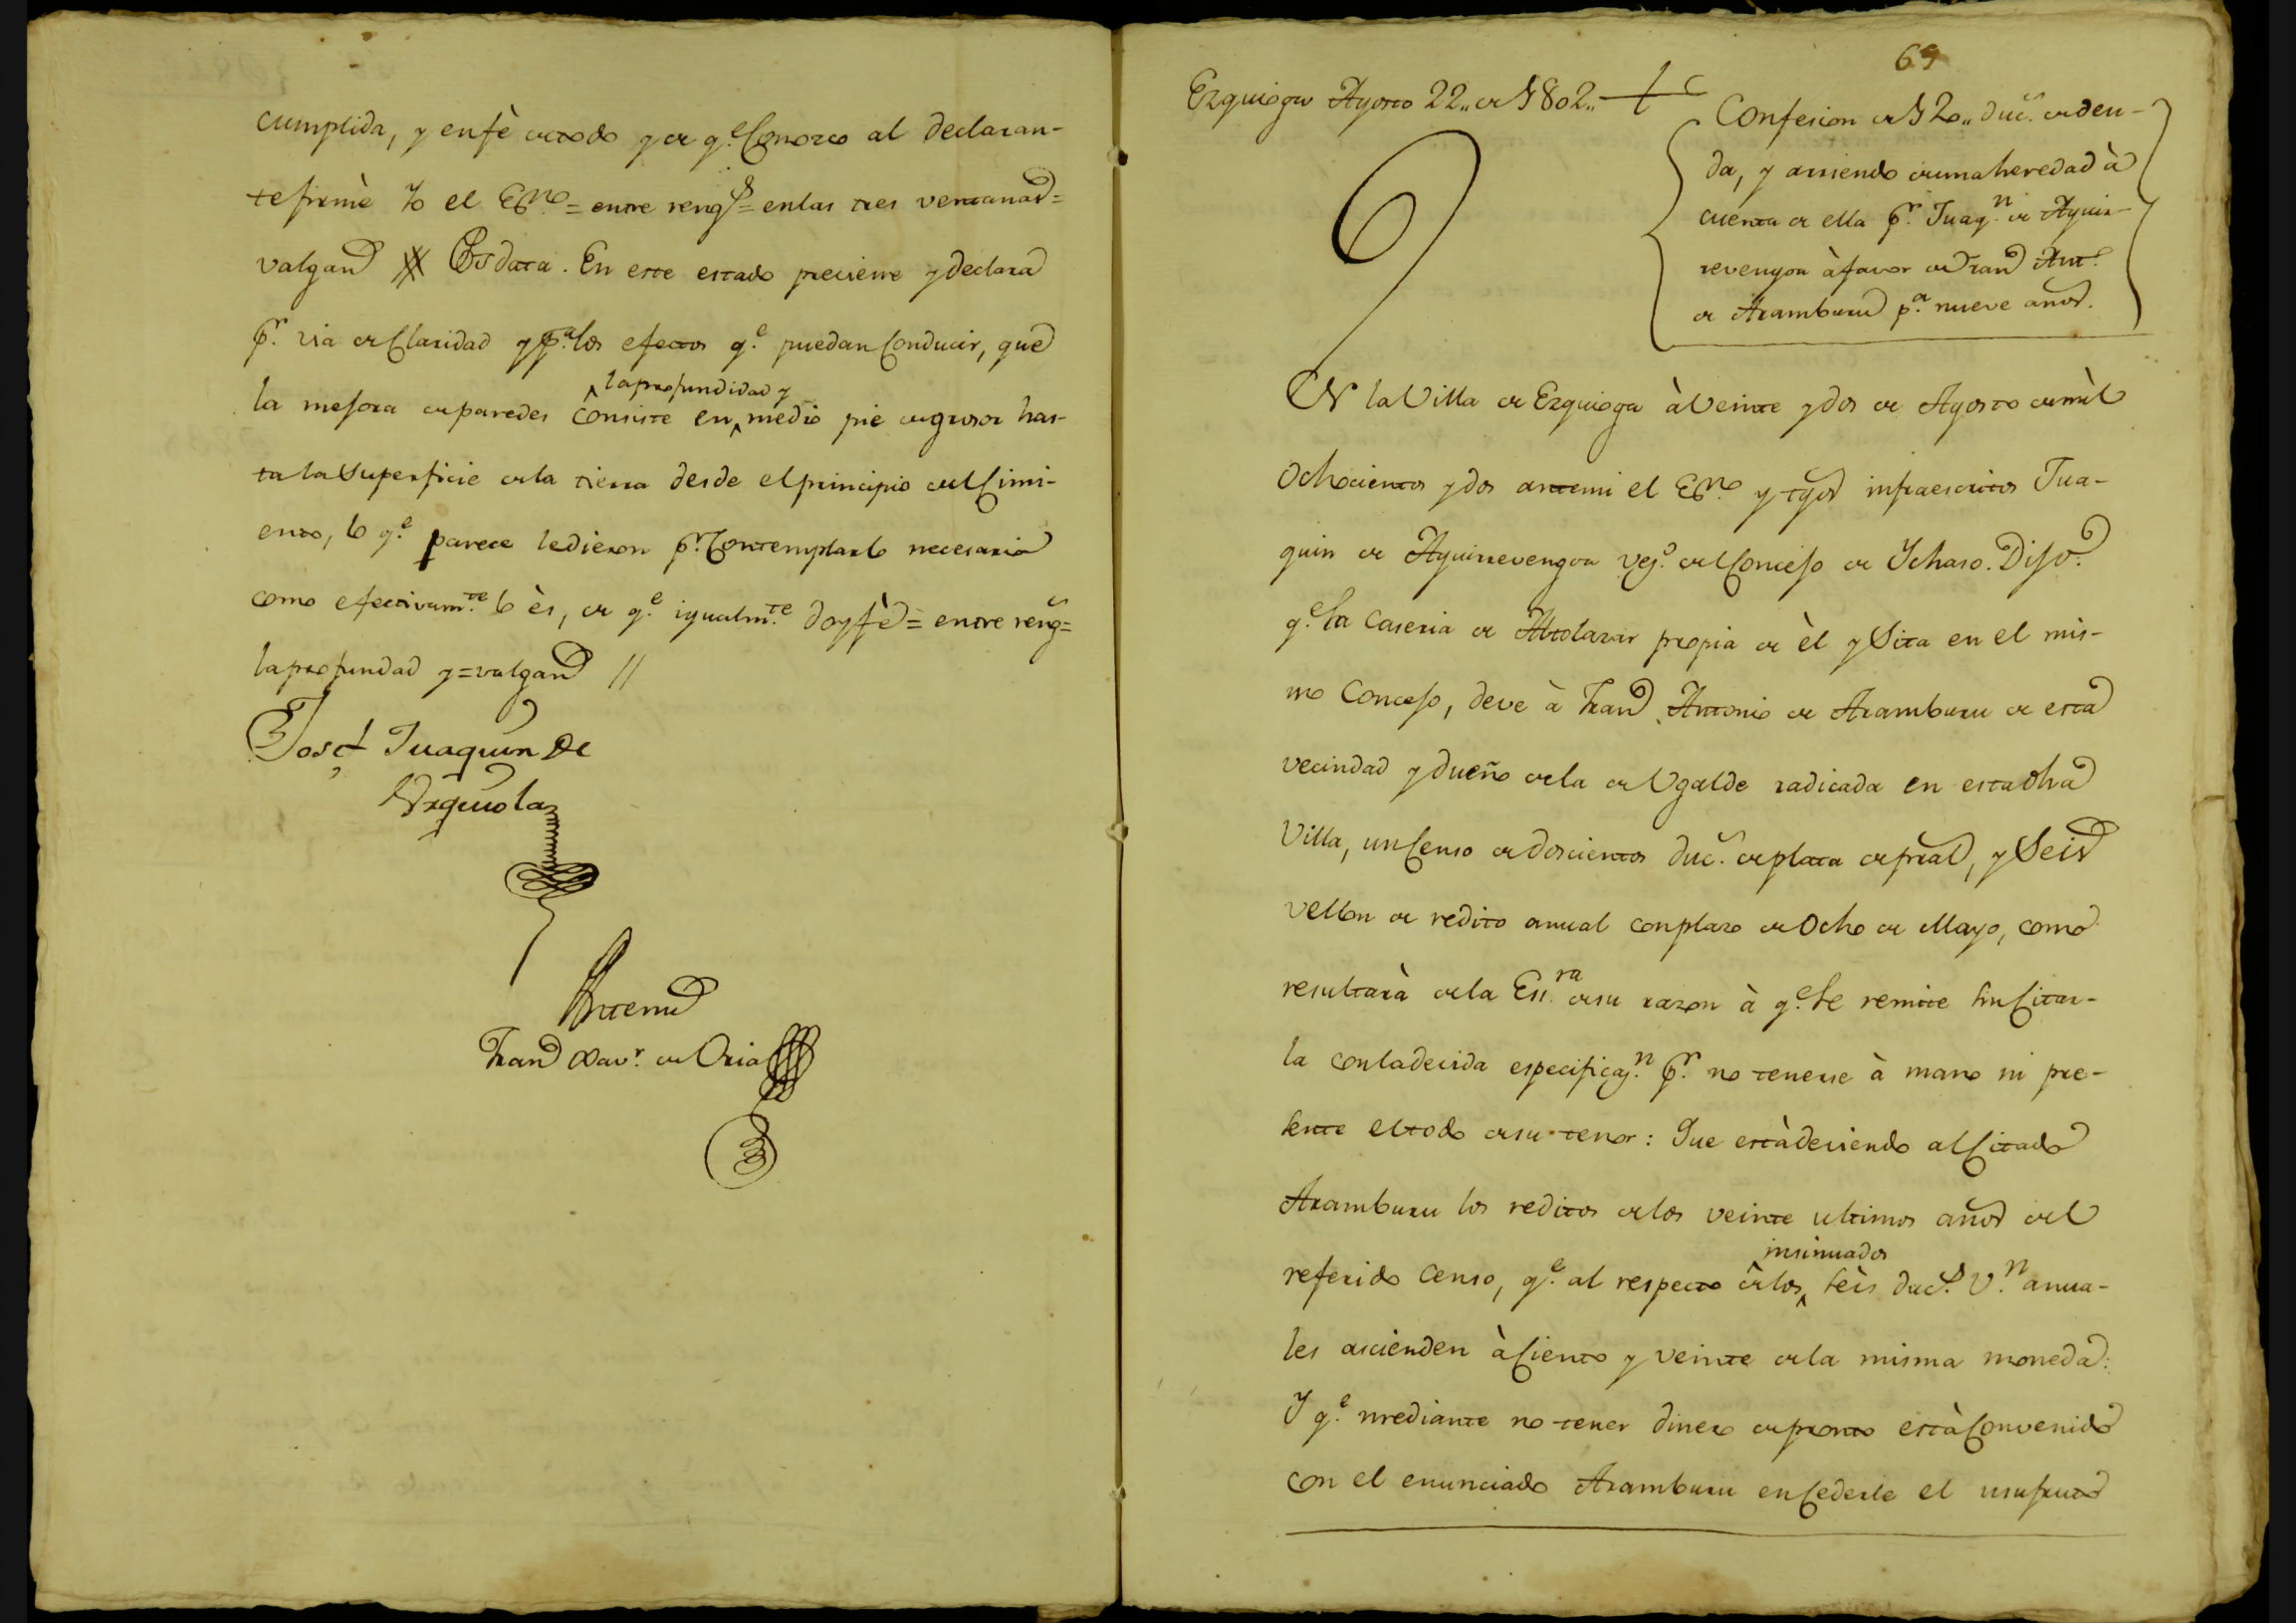 cumplida, y enfè de todo y de q.e Conozco al declaran-
te firmè Yo el Ess.no = entre reng.s = en las tres ventanas =
valgan
data. En este estado previene y declara
p.r via de Claridad y p.a los efectos q.e puedan Conducir, que
la profundidad y
la mejora de paredes consiste en medio pie de grosor has-
ta la Superficie de la tierra desde el principio del Cimi-
ento, lo q.e parece le dieron p.r Contemplarlo necesario
como efectivam.te lo ès, de q.e igualm.te doy fè = entre reng =
la profundad y = valgan //
Josef Juaquin De
Urquiola
Antemi
Fran.co Xav.r de Oria
69
Ezquioga Agosto 22,, de 1802,,
Confesion de 120,, duc.s de deu-
da, y arriendo de una heredad à
cuenta de ella p.r Juaq.n de Aguir-
revengoa à favor de Fran.co Ant.o
de Aramburu p.a nueve años.
En la Villa de Ezquioga à Veinte y dos de Agosto de mil
Ochocientos y dos antemi el Ess.no y tgos infraescritos Jua-
quin de Aguirrevengoa vez.o del Concejo de Ychaso. Dijo:
q.e la Caseria de propia de èl y Sita en el mis-
mo Concejo, deve à Fran.co Antonio de Aramburu de esta
vecindad y dueño de la de Ugalde radicada en esta dha
Villa, un Censo de doscientos duc.s de plata de pral, y Seis
vellon de redito anual con plazo de Ocho de Mayo, como
resultarà de la Ess.ra de su razon à q.e se remite sin Citar-
la con la devida especificaz.n p.r no tenerse à mano ni pre-
sente el todo de su tenor: Que està deviendo al Citado
Aramburu los reditos de los veinte ultimos años del
insinuados
referido Censo, q.e al respecto de los seis duc.s V.n anua-
les ascienden à Ciento y veinte de la misma moneda:
Y q.e mediante no tener dinero de pronto està Convenido
con el enunciado Aramburu en Cederle el usufruto